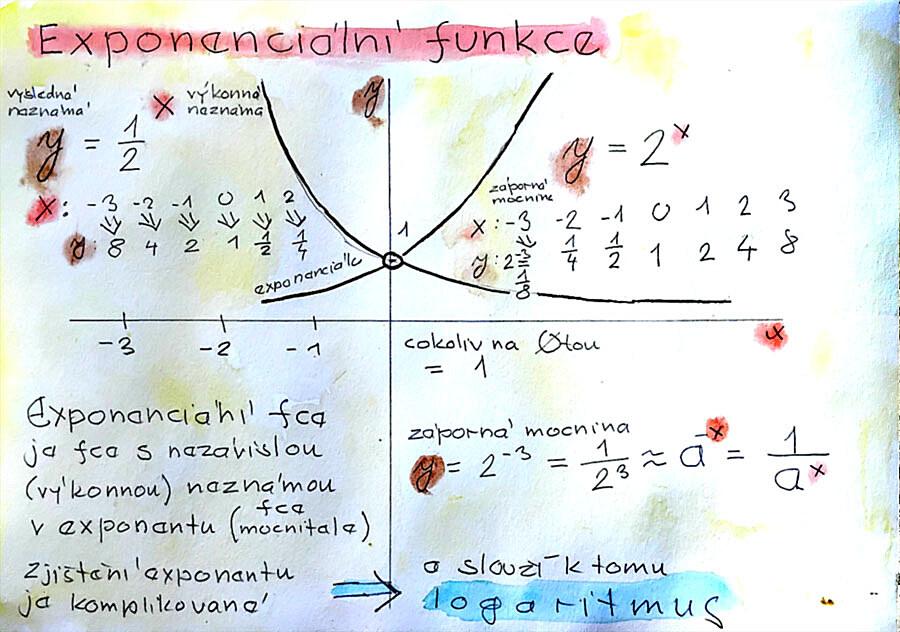 Exponenciální funkce
výsledná neznámá
x výkonná neznámá
y = 1/2
x: -3 -2 -1 0 1 2
y: 8 4 2 1 1/2 1/4
y
1
exponenciála
y = 2^x
záporná mocnina
x: -3 -2 -1 0 1 2 3
y: 2^-3 = 1/8 1/4 1/2 1 2 4 8
-3 -2 -1
x
cokoliv na 0tou
= 1
Exponenciální fce
je fce s nezávislou
(výkonnou) neznámou
fce
v exponentu (mocnitele)
zjištění exponentu
je komplikované
záporná mocnina
y = 2^-3 = 1/2^3 ≈ a^-x = 1/a^x
a slouží k tomu
logaritmus